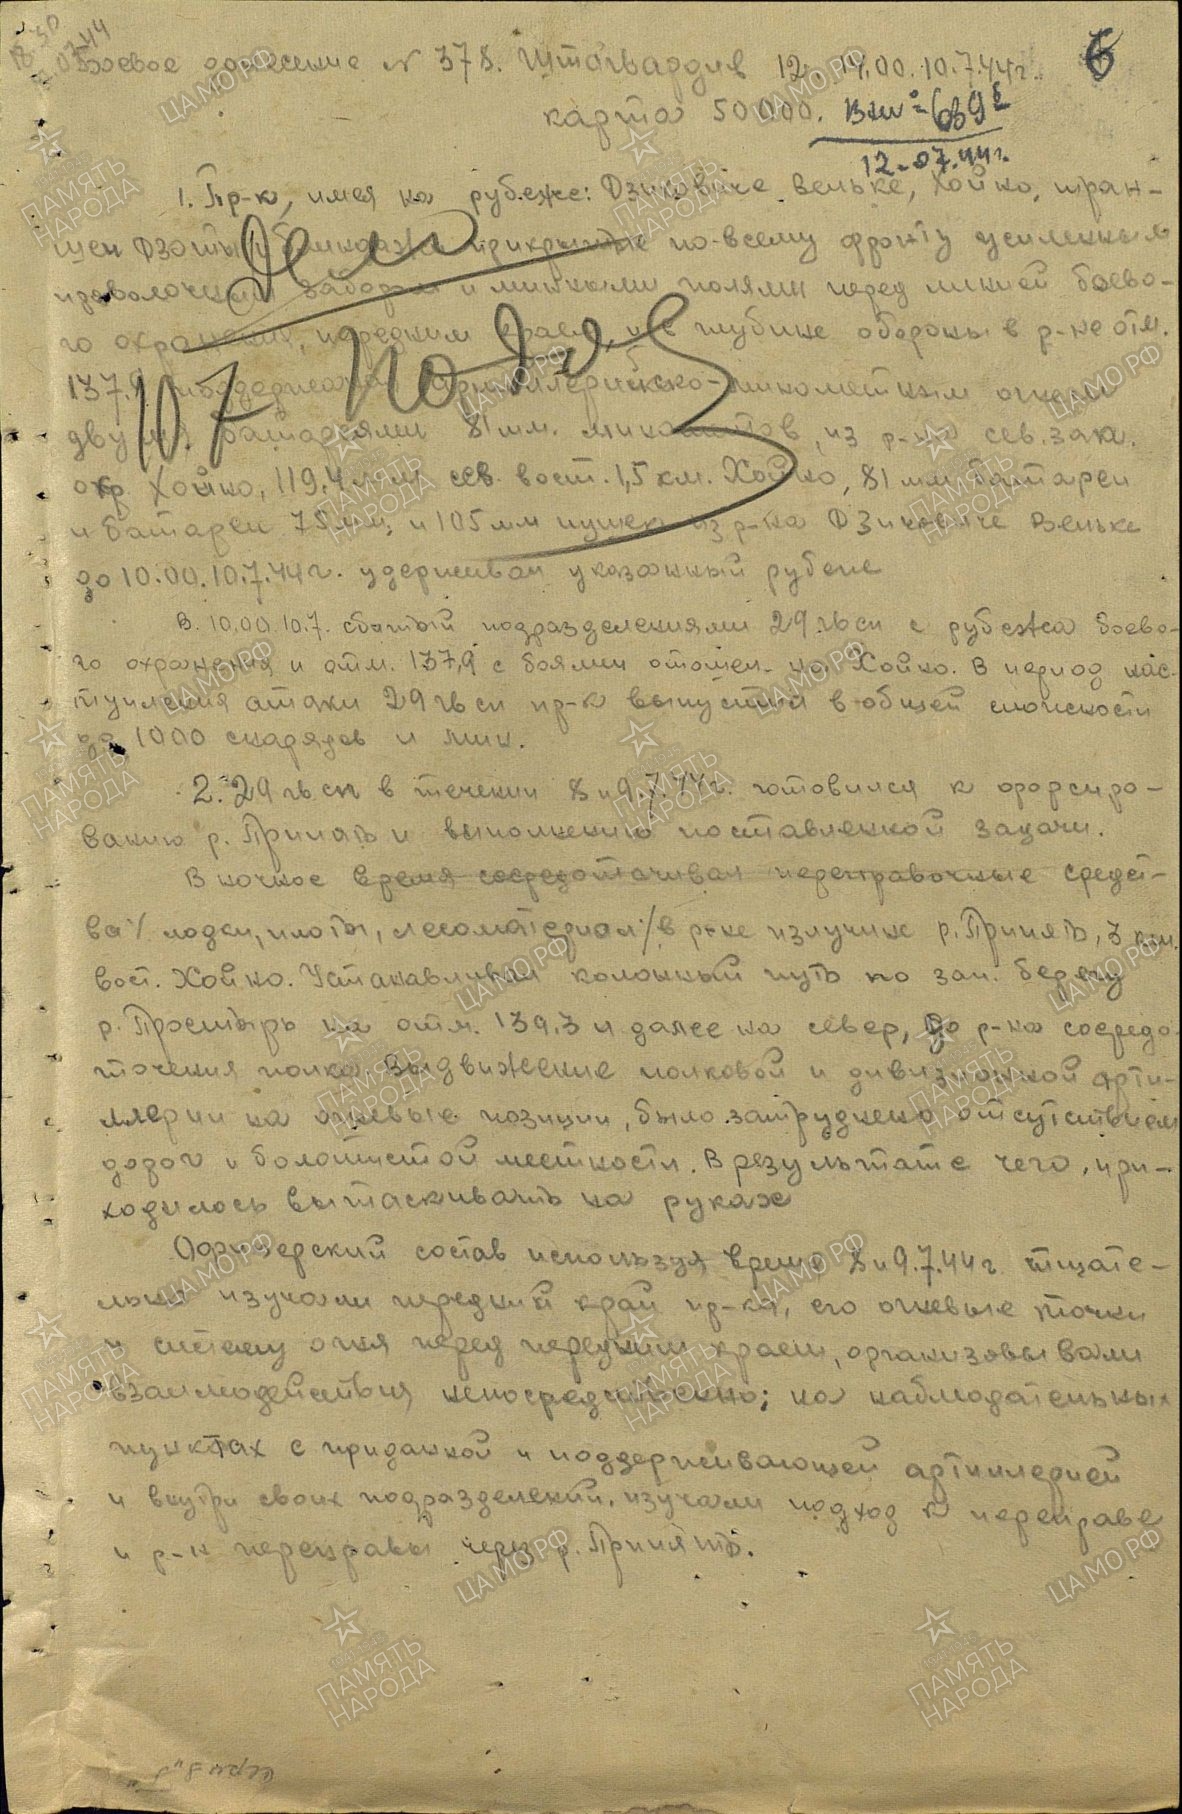 18.30
07.44
Боевое донесение № 378. Штагвардив 12 14.00. 10.7.44г. 6
карта 50000. Вх №
12.07.44г.
1. Пр-к, имея на рубеже: Дзиковиче Вельке, Хойно, тран-
шеи Дзоты прикрытые по-всему фронту усиленным
проволочным забором и минными полями перед линией боево-
го охранения, передним краем и в глубине обороны в р-не отм.
137,9 поддержанная артиллерийско-минометным огнем
двумя батареями 81 мм. минометов, из р-на сев. зап.
окр. Хойно, 119,4 мм сев. вост. 1,5 км. Хойно, 81 мм батареи
и батареи 75 мм; и 105 мм пушек из р-на Дзиковиче Вельке
до 10.00. 10.7.44г. удерживал указанный рубеж
Дело
107 подив
В. 10.00. 10.7. сбитый подразделениями 29 гв сп с рубежа боево-
го охранения и отм. 137,9 с боями отошел на Хойно. В период нас-
тупления атаки 29 гв сп пр-к выпустил в общей сложности
до 1000 снарядов и мин.
2. 29 гв сп в течении 8 и 9.7.44г. готовился к форсиро-
ванию р. Припять и выполнению поставленной задачи.
В ночное время сосредотачивал переправочные средст-
ва /лодки, плоты, лесоматериал/ в р-не излучине р. Припять, 3 км.
вост. Хойно. Устанавливал колонный путь по зап. берегу
р. Простырь на отм. 139,3 и далее на север, до р-на сосредо-
точения полка. Выдвижение полковой и дивизионной арти-
ллерии на огневые позиции, было затруднено отсутствием
дорог и болотистой местности. В результате чего, при-
ходилось вытаскивать на руках
Офицерский состав используя время 8 и 9.7.44г. тщате-
льно изучали передний край пр-ка, его огневые точки
и систему огня перед передним краем, организовывали
взаимодействия непосредственно; на наблюдательных
пунктах с приданной и поддерживающей артиллерией
и внутри своих подразделений, изучали подход к переправе
и р-н переправы через р. Припять.